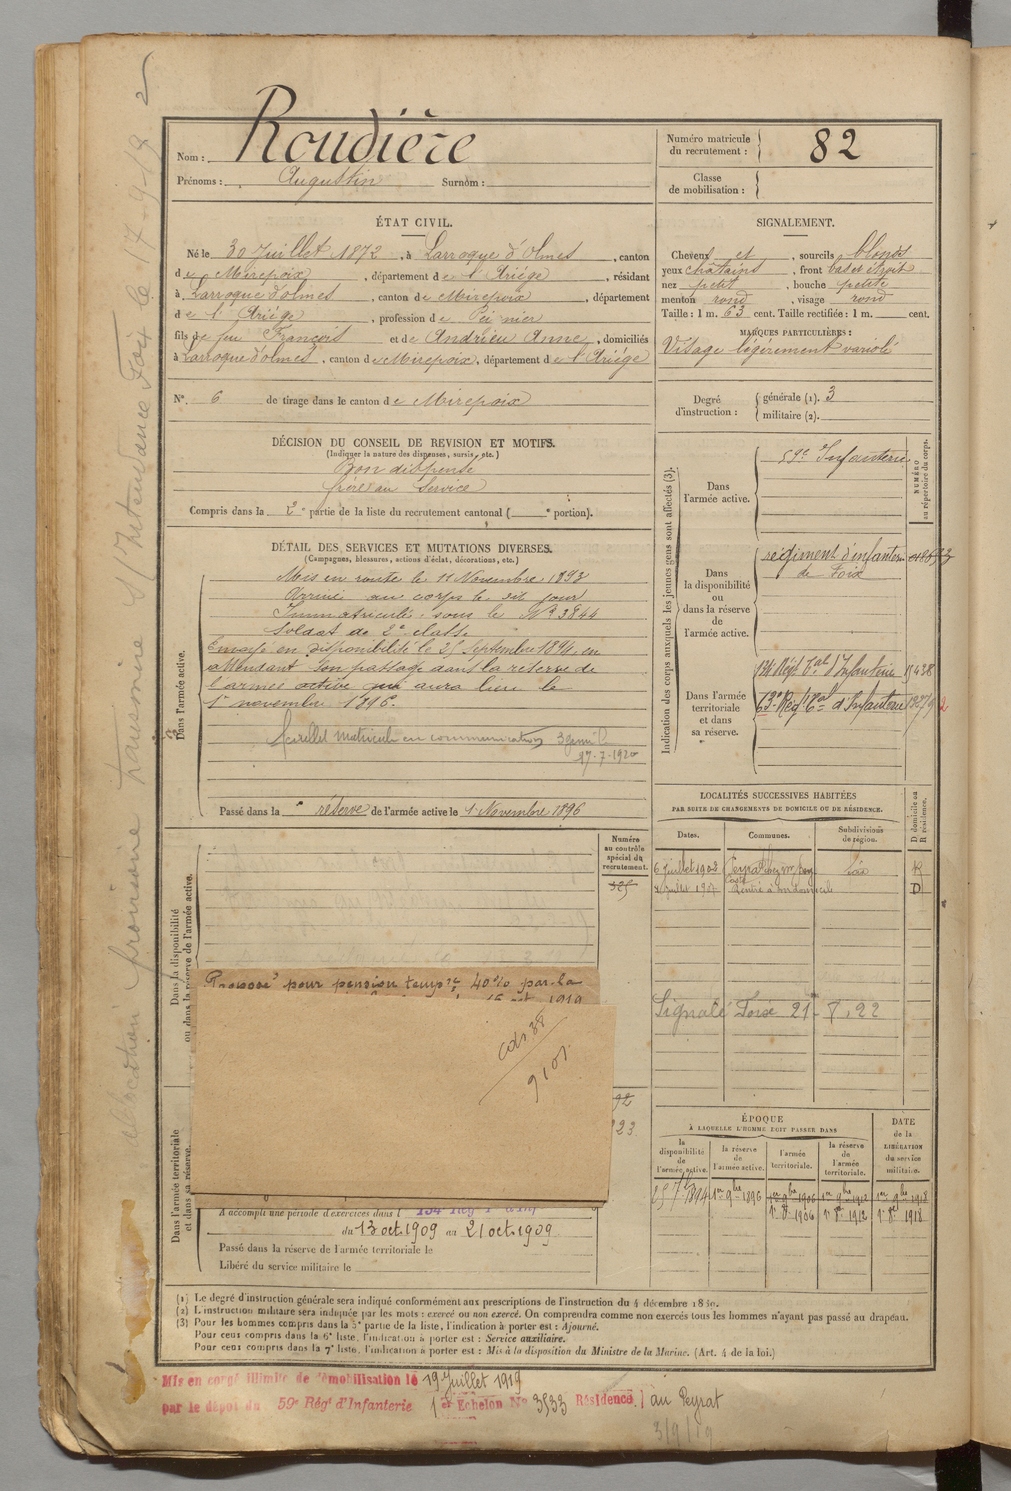 Nom : Roudière
Prénoms : Augustin Surnom :
Numéro matricule du recrutement : 82
Classe de mobilisation :
ÉTAT CIVIL.
Né le 30 Juillet 1872, à Larroque d'Olmes, canton
de Mirepoix, département de l'Ariège, résidant
à Larroque d'olmes, canton de Mirepoix, département
de l'Ariège, profession de Peignier
fils de feu François et de Andrieu Anne, domiciliés
à Larroque d'olmes, canton de Mirepoix, département de l'Ariège
N° 6 de tirage dans le canton de Mirepoix
SIGNALEMENT.
Cheveux et, sourcils blonds
yeux châtains, front bas et étroit
nez petit, bouche petite
menton rond, visage rond
Taille : 1 m. 63 cent. Taille rectifiée : 1 m. cent.
MARQUES PARTICULIÈRES :
Visage légèrement variolé
Degré d'instruction : générale (1). 3
militaire (2).
DÉCISION DU CONSEIL DE REVISION ET MOTIFS.
(Indiquer la nature des dispenses, sursis, etc.)
Bon dispensé
frère au Service
Compris dans la 2e partie de la liste du recrutement cantonal ( e portion).
DÉTAIL DES SERVICES ET MUTATIONS DIVERSES.
(Campagnes, blessures, actions d'éclat, décorations, etc.)
Dans l'armée active.
Mis en route le 11 Novembre 1893
Arrivé au corps le dit jour
Immatriculé sous le N° 3844
Soldat de 2e classe
Envoyé en disponibilité le 25 Septembre 1894 en
attendant son passage dans la réserve de
l'armée active qui aura lieu le
1er novembre 1896.
feuillet matricule en communication
17-7-1920
Passé dans la réserve de l'armée active le 1er Novembre 1896
Indication des corps auxquels les jeunes gens sont affectés (3).
NUMÉRO au répertoire du corps.
Dans l'armée active.
59e Infanterie
Dans la disponibilité ou dans la réserve de l'armée active.
régiment d'infanterie
de Foix
Dans l'armée territoriale et dans sa réserve.
134 Régt Tal d'Infanterie
63e Régt Tal d'Infanterie
LOCALITÉS SUCCESSIVES HABITÉES
PAR SUITE DE CHANGEMENTS DE DOMICILE OU DE RÉSIDENCE.
D domicile ou R résidence.
Dates. Communes. Subdivisions de région.
6 Juillet 1903 Foix R
Rentré à son domicile D
Signalé Foix 21-8.22
Numéro au contrôle spécial du recrutement.
325
Dans la disponibilité ou dans la réserve de l'armée active.
Proposé pour pension tempre 40% par la
15 oct. 1919
9101
Dans l'armée territoriale et dans sa réserve.
23
A accompli une période d'exercices dans l 134 Régt
du 13 oct. 1909 au 21 oct. 1909
Passé dans la réserve de l'armée territoriale le
Libéré du service militaire le
ÉPOQUE
À LAQUELLE L'HOMME DOIT PASSER DANS
DATE de la LIBÉRATION du service militaire.
la disponibilité de l'armée active. la réserve de l'armée active. l'armée territoriale. la réserve de l'armée territoriale.
25 7bre 1894 1er 9bre 1896 1er 9bre 1906 1er 9bre 1912 1er 9bre 1918
1er 8bre 1906 1er 8bre 1912 1er 8bre 1918
(1) Le degré d'instruction générale sera indiqué conformément aux prescriptions de l'instruction du 4 décembre 18
(2) L'instruction militaire sera indiquée par les mots : exercé ou non exercé. On comprendra comme non exercés tous les hommes n'ayant pas passé au drapeau.
(3) Pour les hommes compris dans la 5e partie de la liste, l'indication à porter est : Ajourné.
Pour ceux compris dans la 6e liste, l'indication à porter est : Service auxiliaire.
Pour ceux compris dans la 7e liste, l'indication à porter est : Mis à la disposition du Ministre de la Marine. (Art. 4 de la loi.)
Mis en congé illimité de démobilisation le 19 Juillet 1919
par le dépôt du 59e Régt d'Infanterie 1er Echelon N° 3533 Résidence au Peyrat
3/9/19
allocation provisoire transmise à l'Intendance Foix le 17-9-19